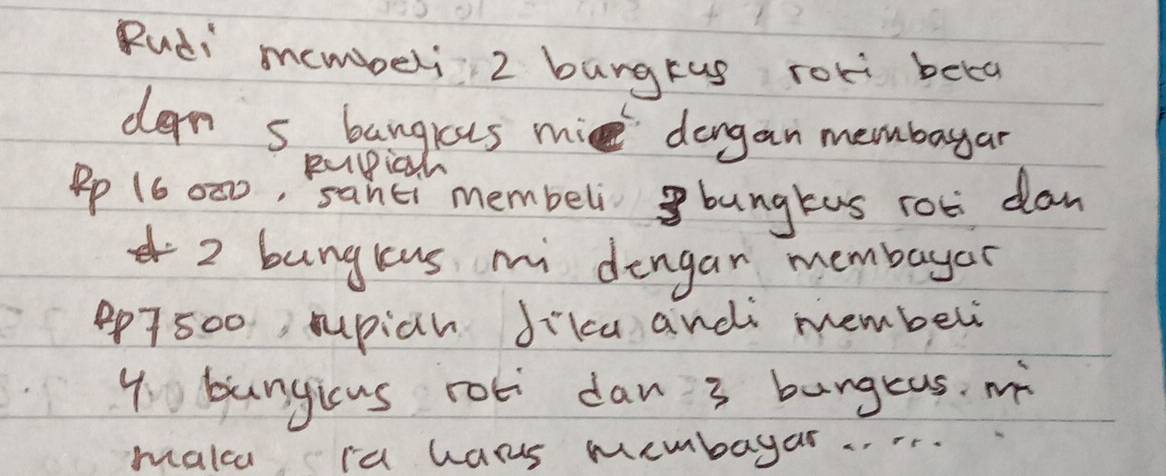 Rudi membeli 2 bungkus roti beta
dan 5 bangkus mie dengan membayar
rupiah
Rp 16 000, santi membeli 3 bungkus roti dan
2 bungkus mi dengan membayar
Rp 7 500, rupiah Jika andi membeli
4 bungkus roti dan 3 bungkus mi
maka ia harus membayar .....